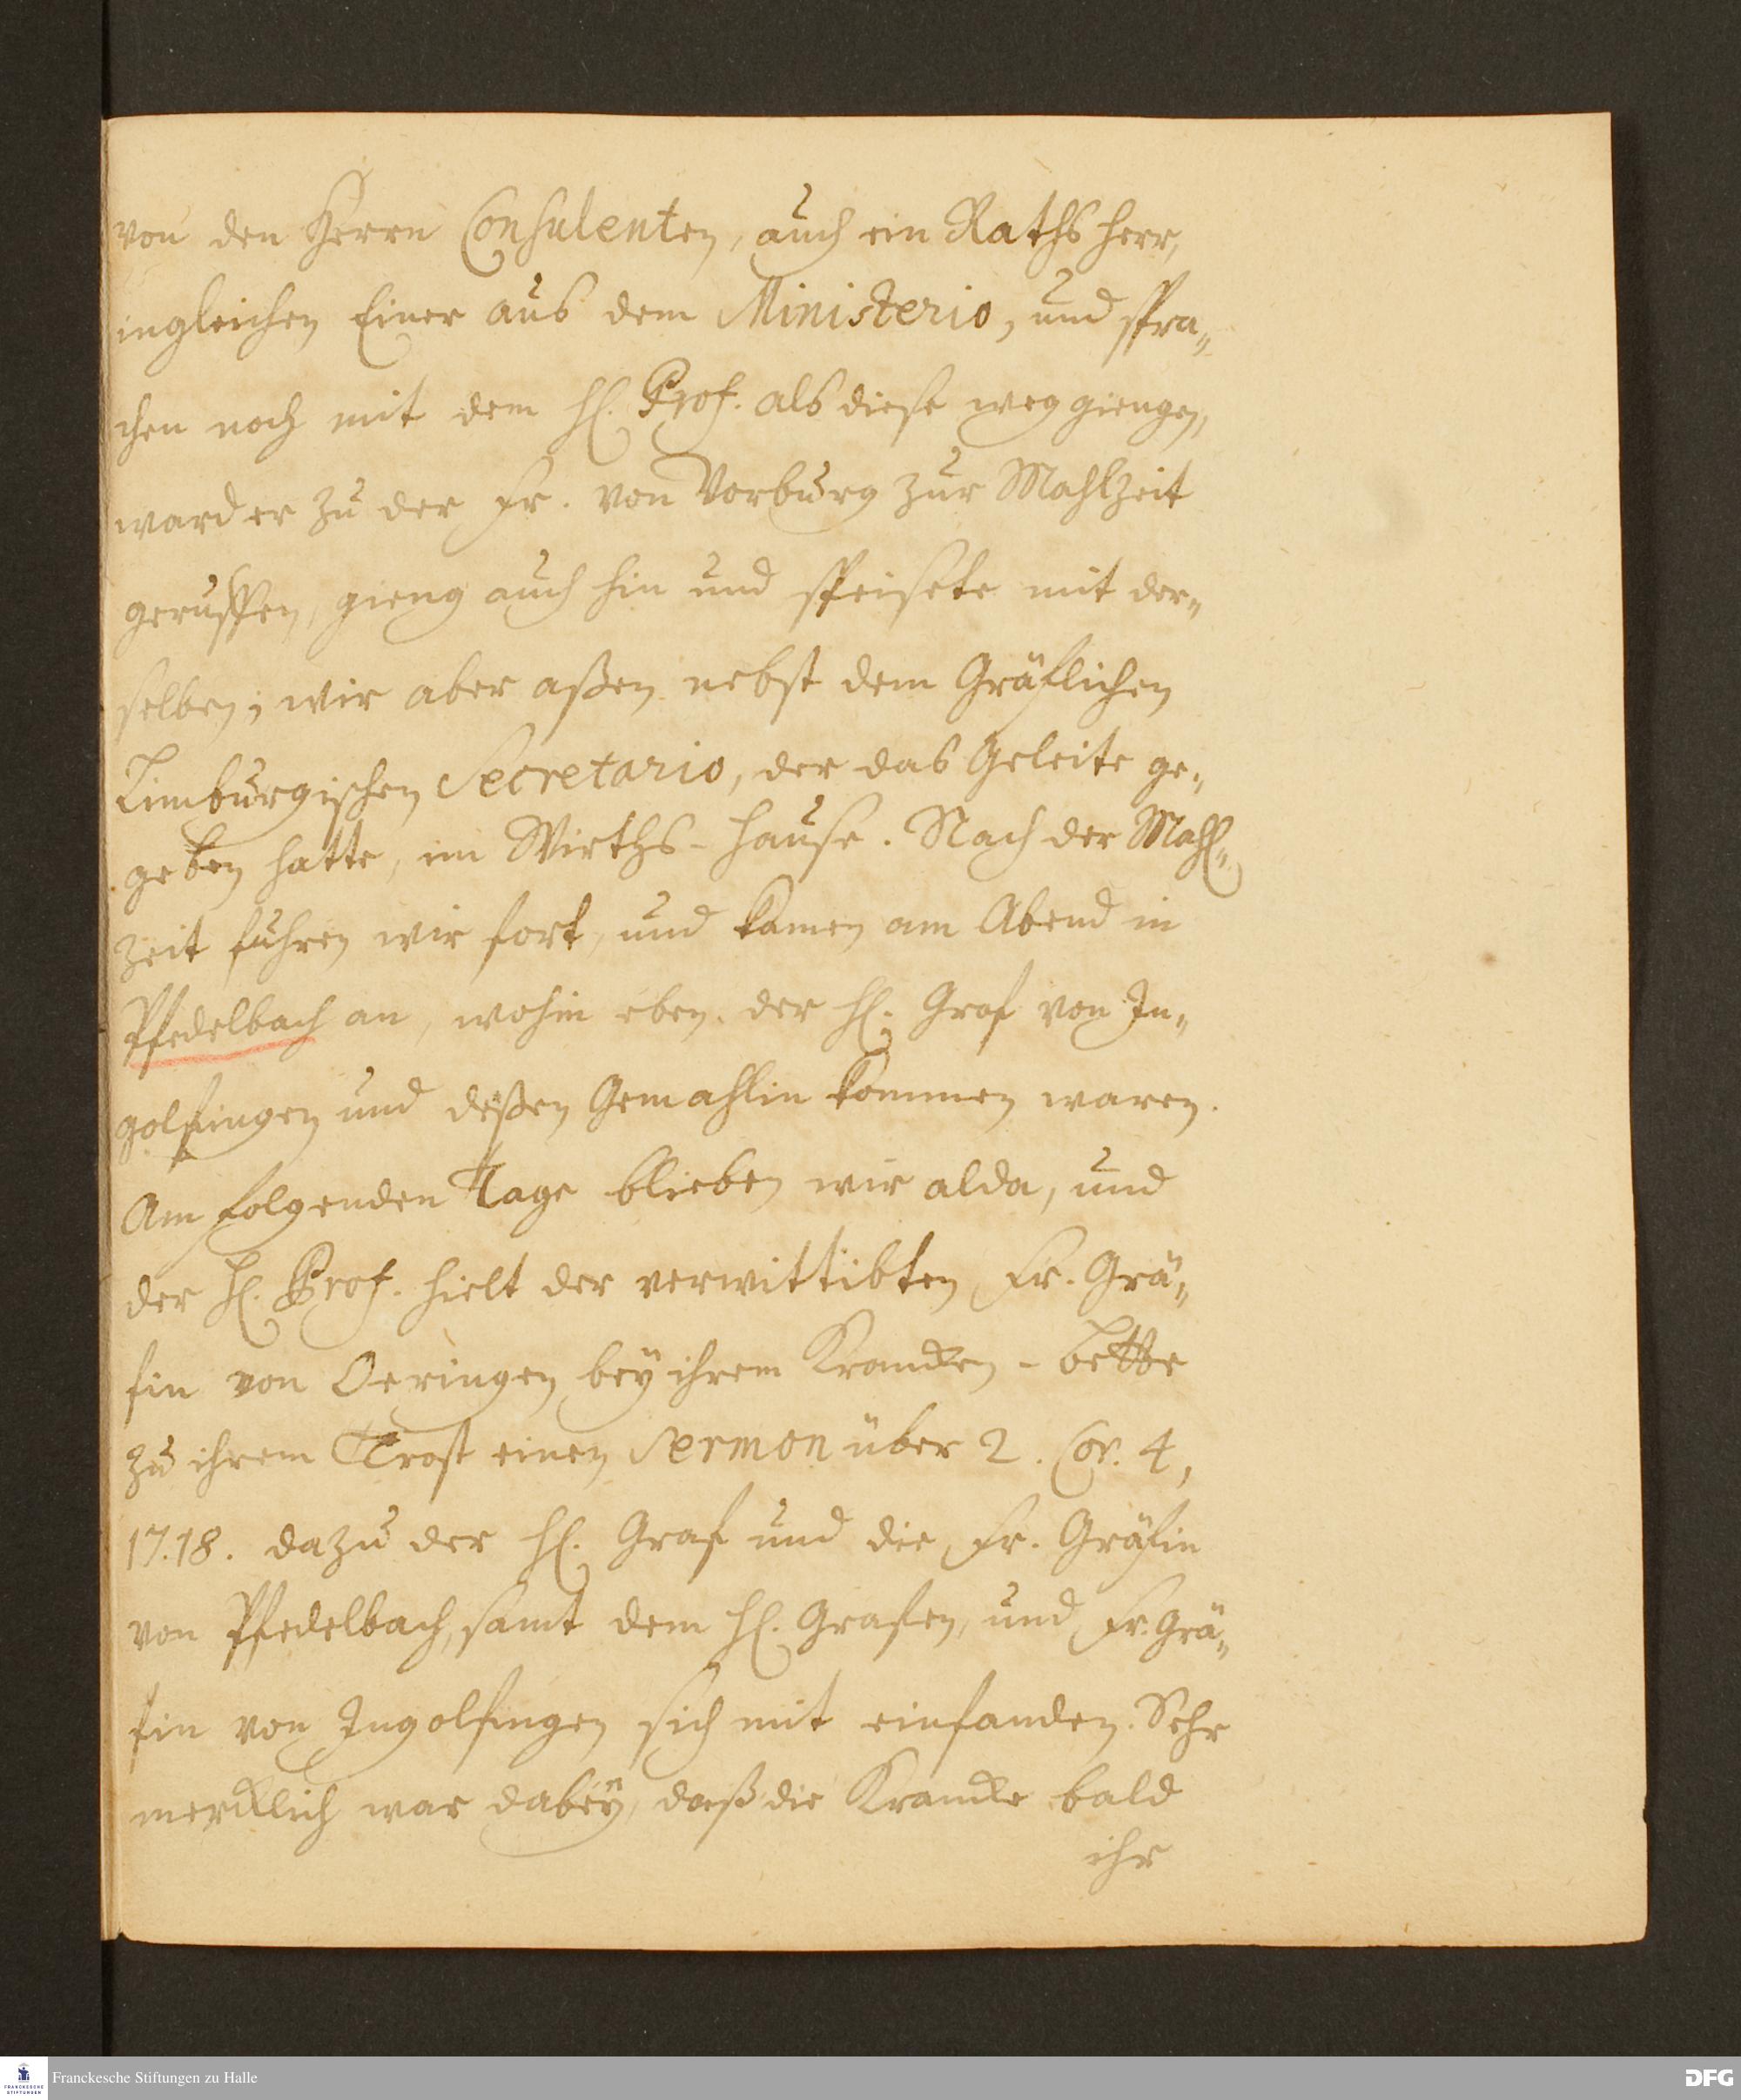 von den Herrn Consulenten, auch ein Raths herr,
ingleichen Einer aus dem Ministerio, und spra„
chen noch mit dem H. Prof. als diese weg giengen,
ward er zu der Fr. von Vorburg zur Mahlzeit
geruffen, gieng auch hin und speisete mit der„
selben; wir aber aßen nebst dem Gräflichen
Limburgischen Secretario, der das Geleite ge„
geben hatte, im Wirths-hause. Nach der Mahl„
zeit fuhren wir fort, und kamen am Abend in
Pfedelbach an, wohin eben der H. Graf von In„
golfingen und deßen Gemahlin kommen waren.
Am folgenden Tage blieben wir alda, und
der H. Prof. hielt der verwittibten Fr. Grä„
fin von Oeringen bey ihrem Krancken-bette
zu ihrem Trost einen Sermon über 2. Cor. 4,
17.18. dazu der H. Graf und die Fr. Gräfin
von Pfedelbach, samt dem H. Grafen, und Fr. Grä„
fin von Ingolfingen sich mit einfanden. Sehr
mercklich war dabey, daß die Krancke bald
ihr
Franckesche Stiftungen zu Halle
FRANCKESCHE
STIFTUNGEN
DFG